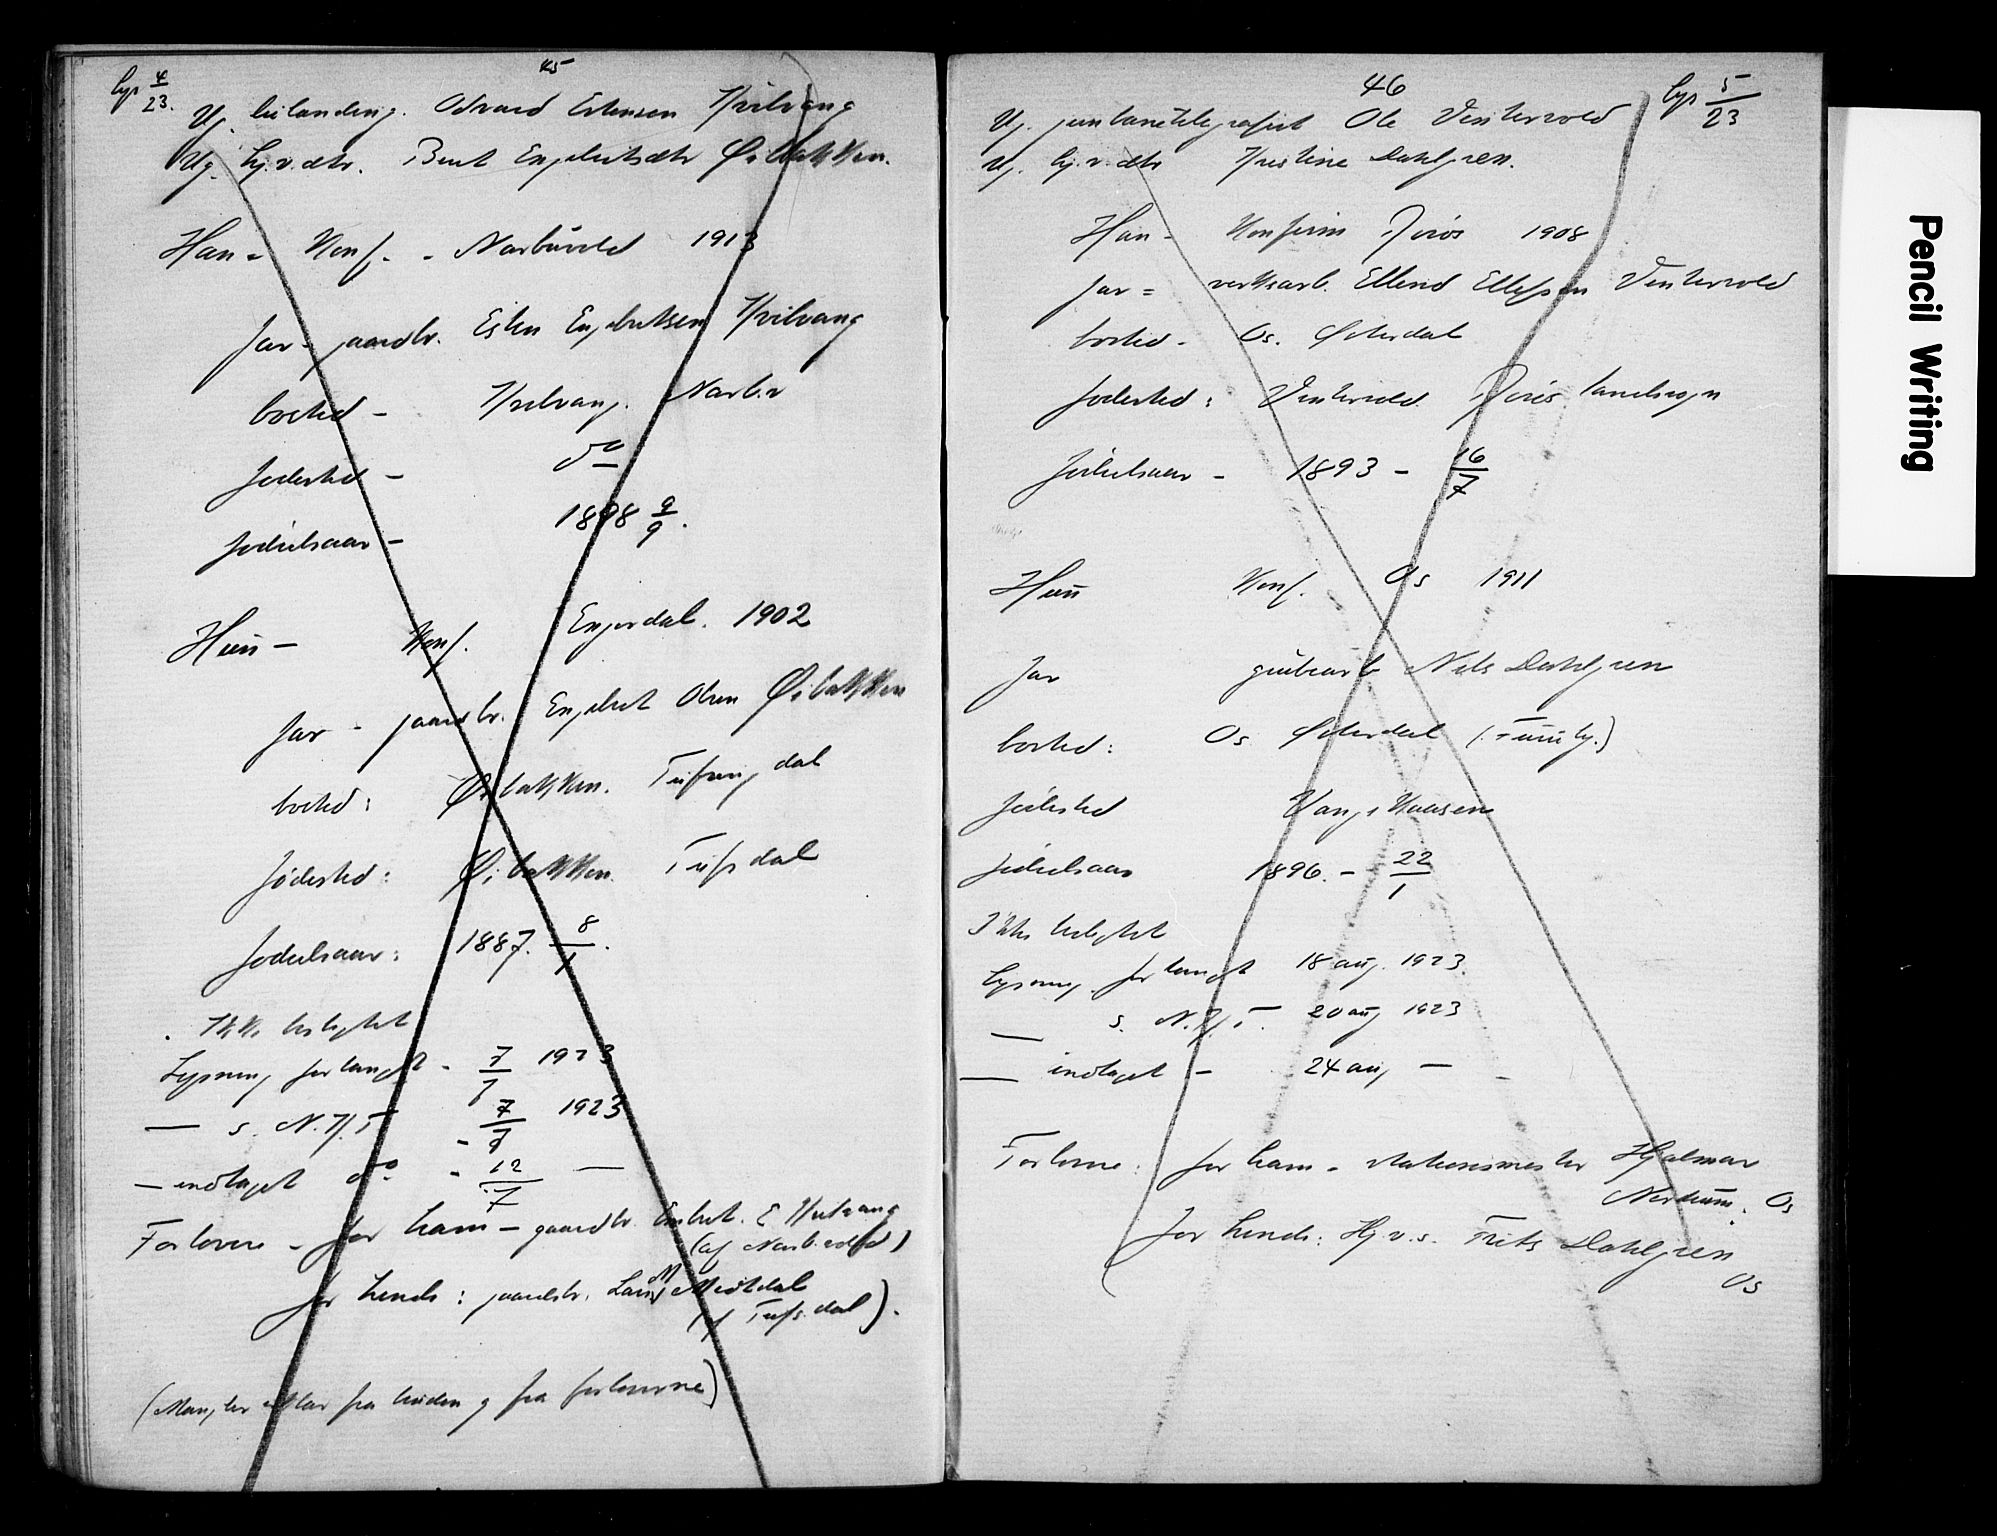 45
lys 4/23.
Ug. Odvard Estensen Kvilvang
Ug. hj.v. dtr. Berit Engebretsdtr Øibakken.
Han - Konf. - Narbuvold 1913
far - gaardbr. Esten Engebretsen Kvilvang
bosted - Kvilvang. Narb.v
fødested - do
fødselsaar - 1898 9/9.
Hun - Konf. Engerdal. 1902
far - gaardbr. Engebret Olsen Øibakken
bosted: Øibakken. Tufsingdal
fødested: Øibakken Tufsdal
fødselsaar: 1887. 8/1.
Ikke beslegtet
Lysning forlangt - 7/7 1923
— s. N.K.T - 7/7 1923
— indtaget do - 12/7 —
Forlovere - for ham - gaardbr. Embret. E Kvilvang
(af Narb.vold)
for hende: gaardbr. Lars M Midtdal
(af Tufs.dal).
(Mangler attest fra bruden og fra forloverne)
46
lys 5/23
Ug. Ole Vintervold
Ug. hj.v. dtr Kristine Dahlgren.
Han - Konfirm Røros 1908
far = verksarb. Ellend Ellefsen Vintervold
bosted - Os. Østerdal
fødested: Vintervold. Røros landsogn
fødselsaar - 1893 - 16/7
Hun Konf. Os 1911
far grubearb Nils Dahlgren
bosted: Os Østerdal
fødested Vangskaasen
fødselsaar 1896. - 22/1
Ikke beslegtet
Lysning forlangt 18 aug. 1923.
— s. N.K.T. 20 aug 1923
— indtaget - 24 aug —
Forlovere: for ham - stationsmester Hjalmar
Nordrum. Os
for hende: Hj.v.s. Frits Dahlgren
Os
Pencil Writing